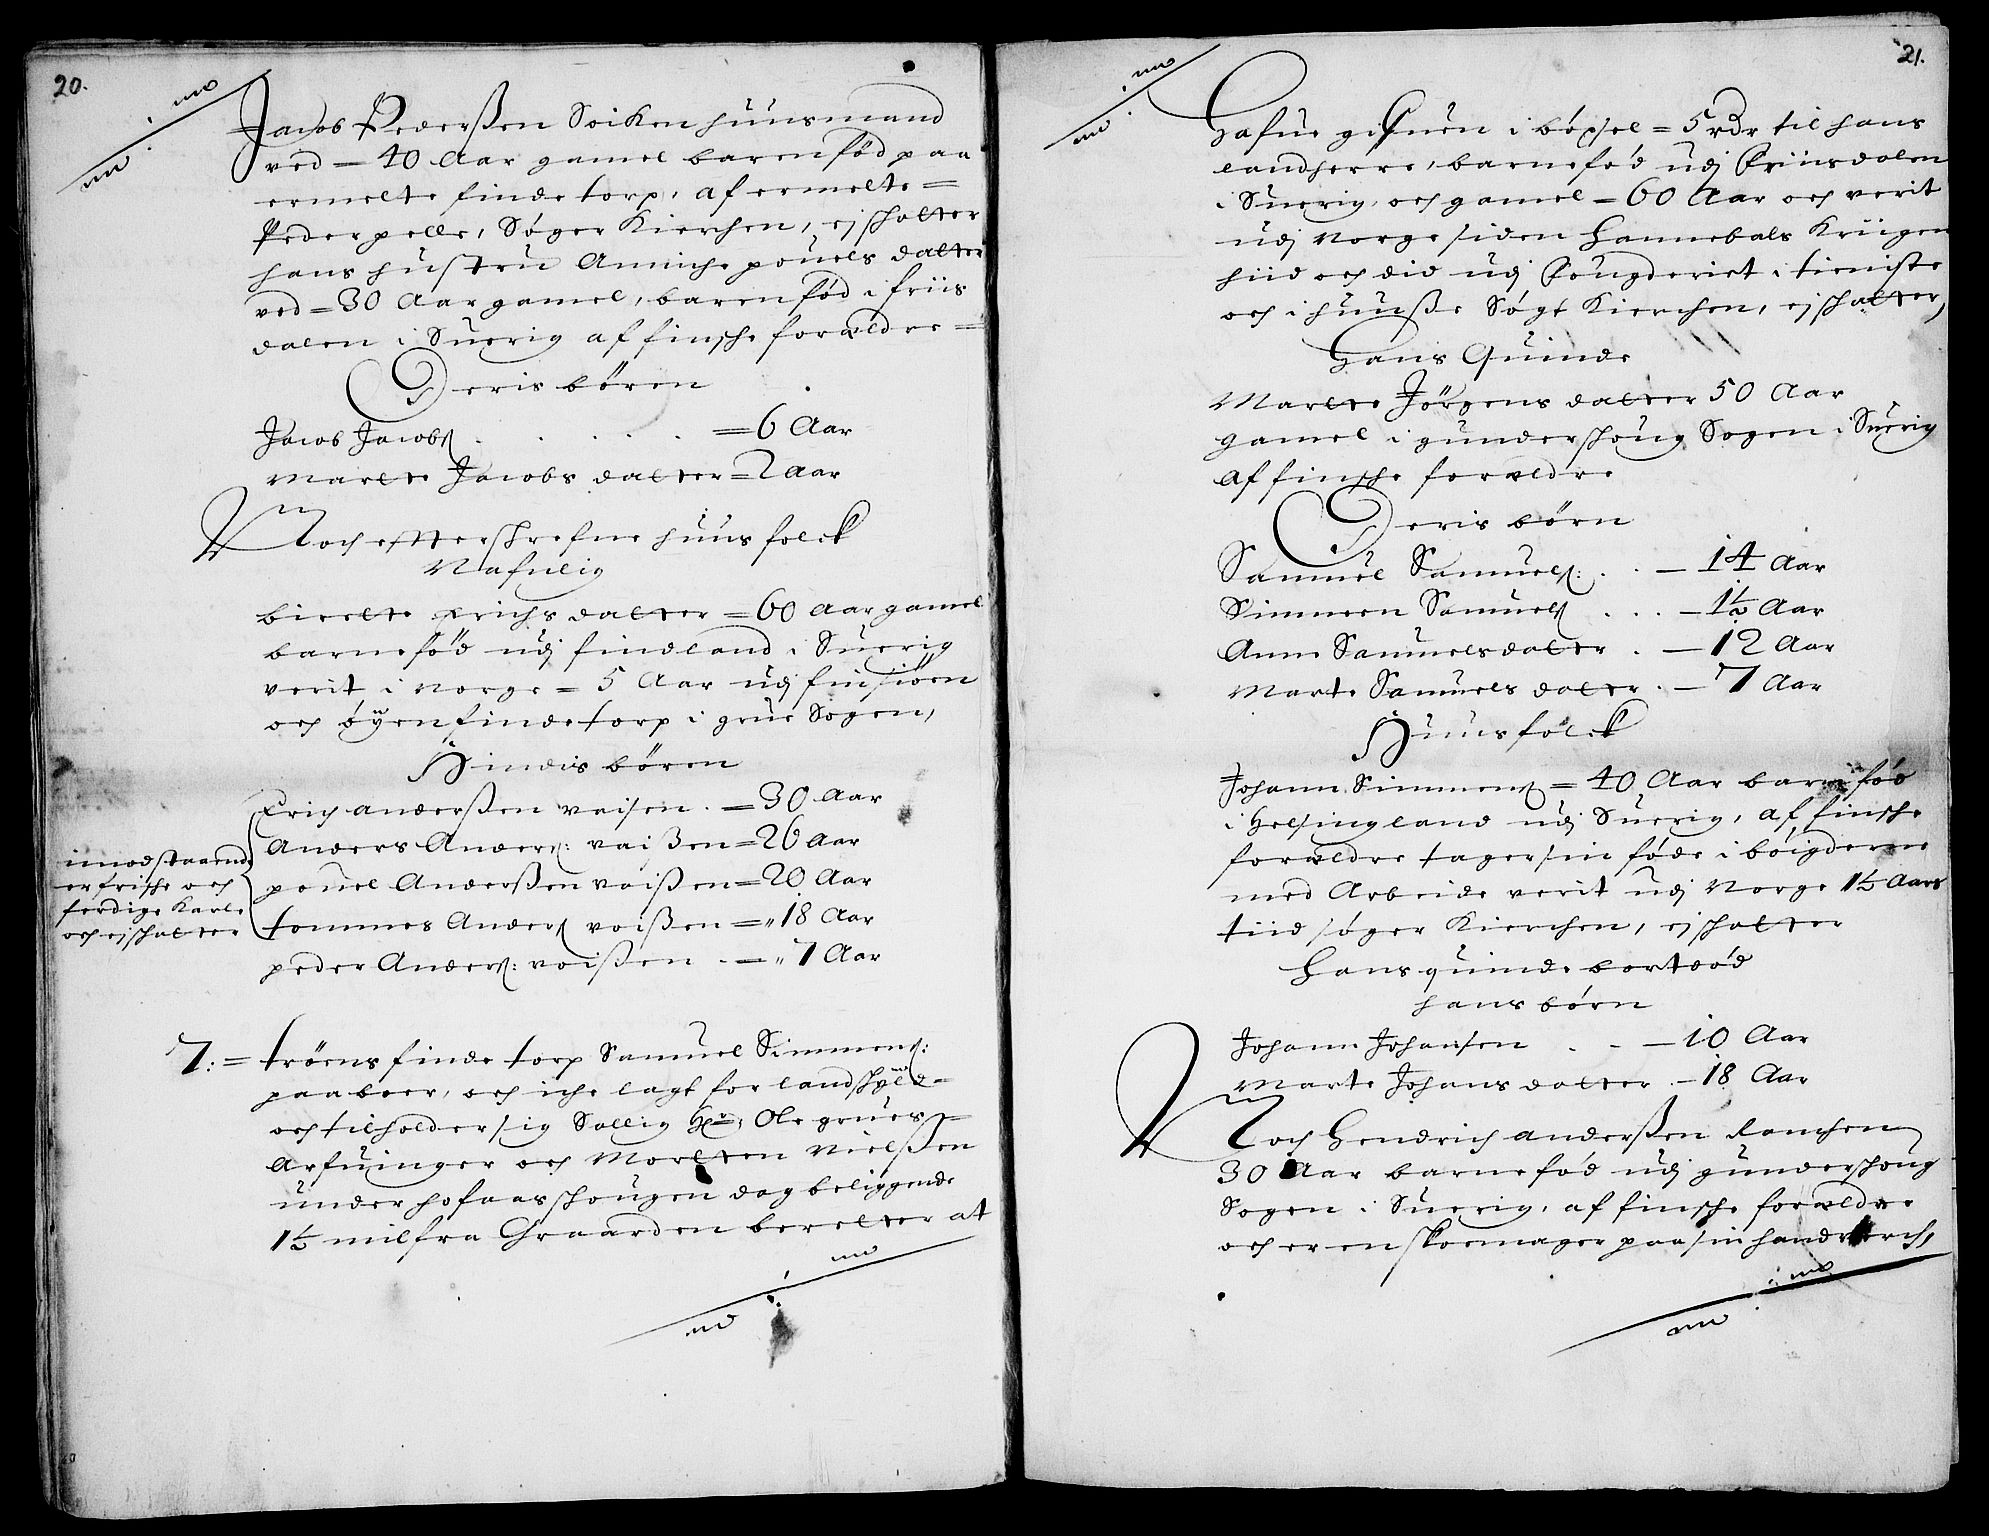 20.
Jacob Pederßen Soiken huusmand
ved = 40 Aar gamel barenfød paa
ermelte finde torp, af ermelte =
Peder pelle, Søger Kierchen, ej schatter
hans hustru Anniche pouels datter
ved = 30 Aar gamel, barenfød i friis
dalen i Suerig af finsche forældre =
Deris bören
Jacob Jacobs . . . . . = 6 Aar
Marete Jacobs datter = 2 Aar
Noch efftterschrefne huus folck
Nafnlig
birette Erichs datter = 60 Aar gamel
barnefød udj findland i Suerig
verit i Norge = 5 Aar udj finsiöen
och öÿen finde torp i grue Sogen,
Hindis bören
Erich anderßen vaisen . = 30 Aar
Anders Anders: vaißen = 26 Aar
pouel Anderßen voißen = 20 Aar
tommes Anders voißen = 18 Aar
peder Anders: voißen . = 7 Aar
imodstaaende
er frische och
ferdige Karle
och ej schatter
7: = tröens finde torp Samuel Simmens:
paaboer, och iche lagt for landschÿld =
och tilholder sig Sallig Hr: Ole grues =
Arfuinger och Morten Nielßen
under hofaasschougen dog beliggende
1½ mil fra Graarden beretter at
21.
Hafue gifuen i böxsel = 5 rdr til hans
landherre, barnefød udj Friisdalen
i Suerig, och gamel = 60 Aar och verit
udj Norge siden Hannebals Kriigen
hiid och did udj Fougderiet i tieniste
och i huuße Søgt Kierchen, ej schatter,
Hans Quinde
Marete Jörgens datter 50 Aar
gamel i gunderschoug Sogen i Suerig
af finsche forældre
Deris börn
Samuel Samuels: . . — 14 Aar
Simmen Samuels . . . — 1½ Aar
Anne Samuelsdatter . — 12 Aar
Marte Samuels datter . — 7 Aar
Huusfolck
Johann Simmens = 40 Aar barnefød
i Helsingland udj Suerig, af finsche
forældre tager sin føde i böigderne
med Arbeide verit udj Norge 1½ Aars
tiid søger Kierchen, ej schatter
Hans quinde bortdöd
hans börn
Johann Johansen . . — 10 Aar
Marte Johans datter . — 18 Aar
Noch Hendrich anderßen Ronchen
30 Aar barnefød udj gunderschoug
Sogen i Suerig, af finsche forældre
och er en skoemager paa sin handverch,